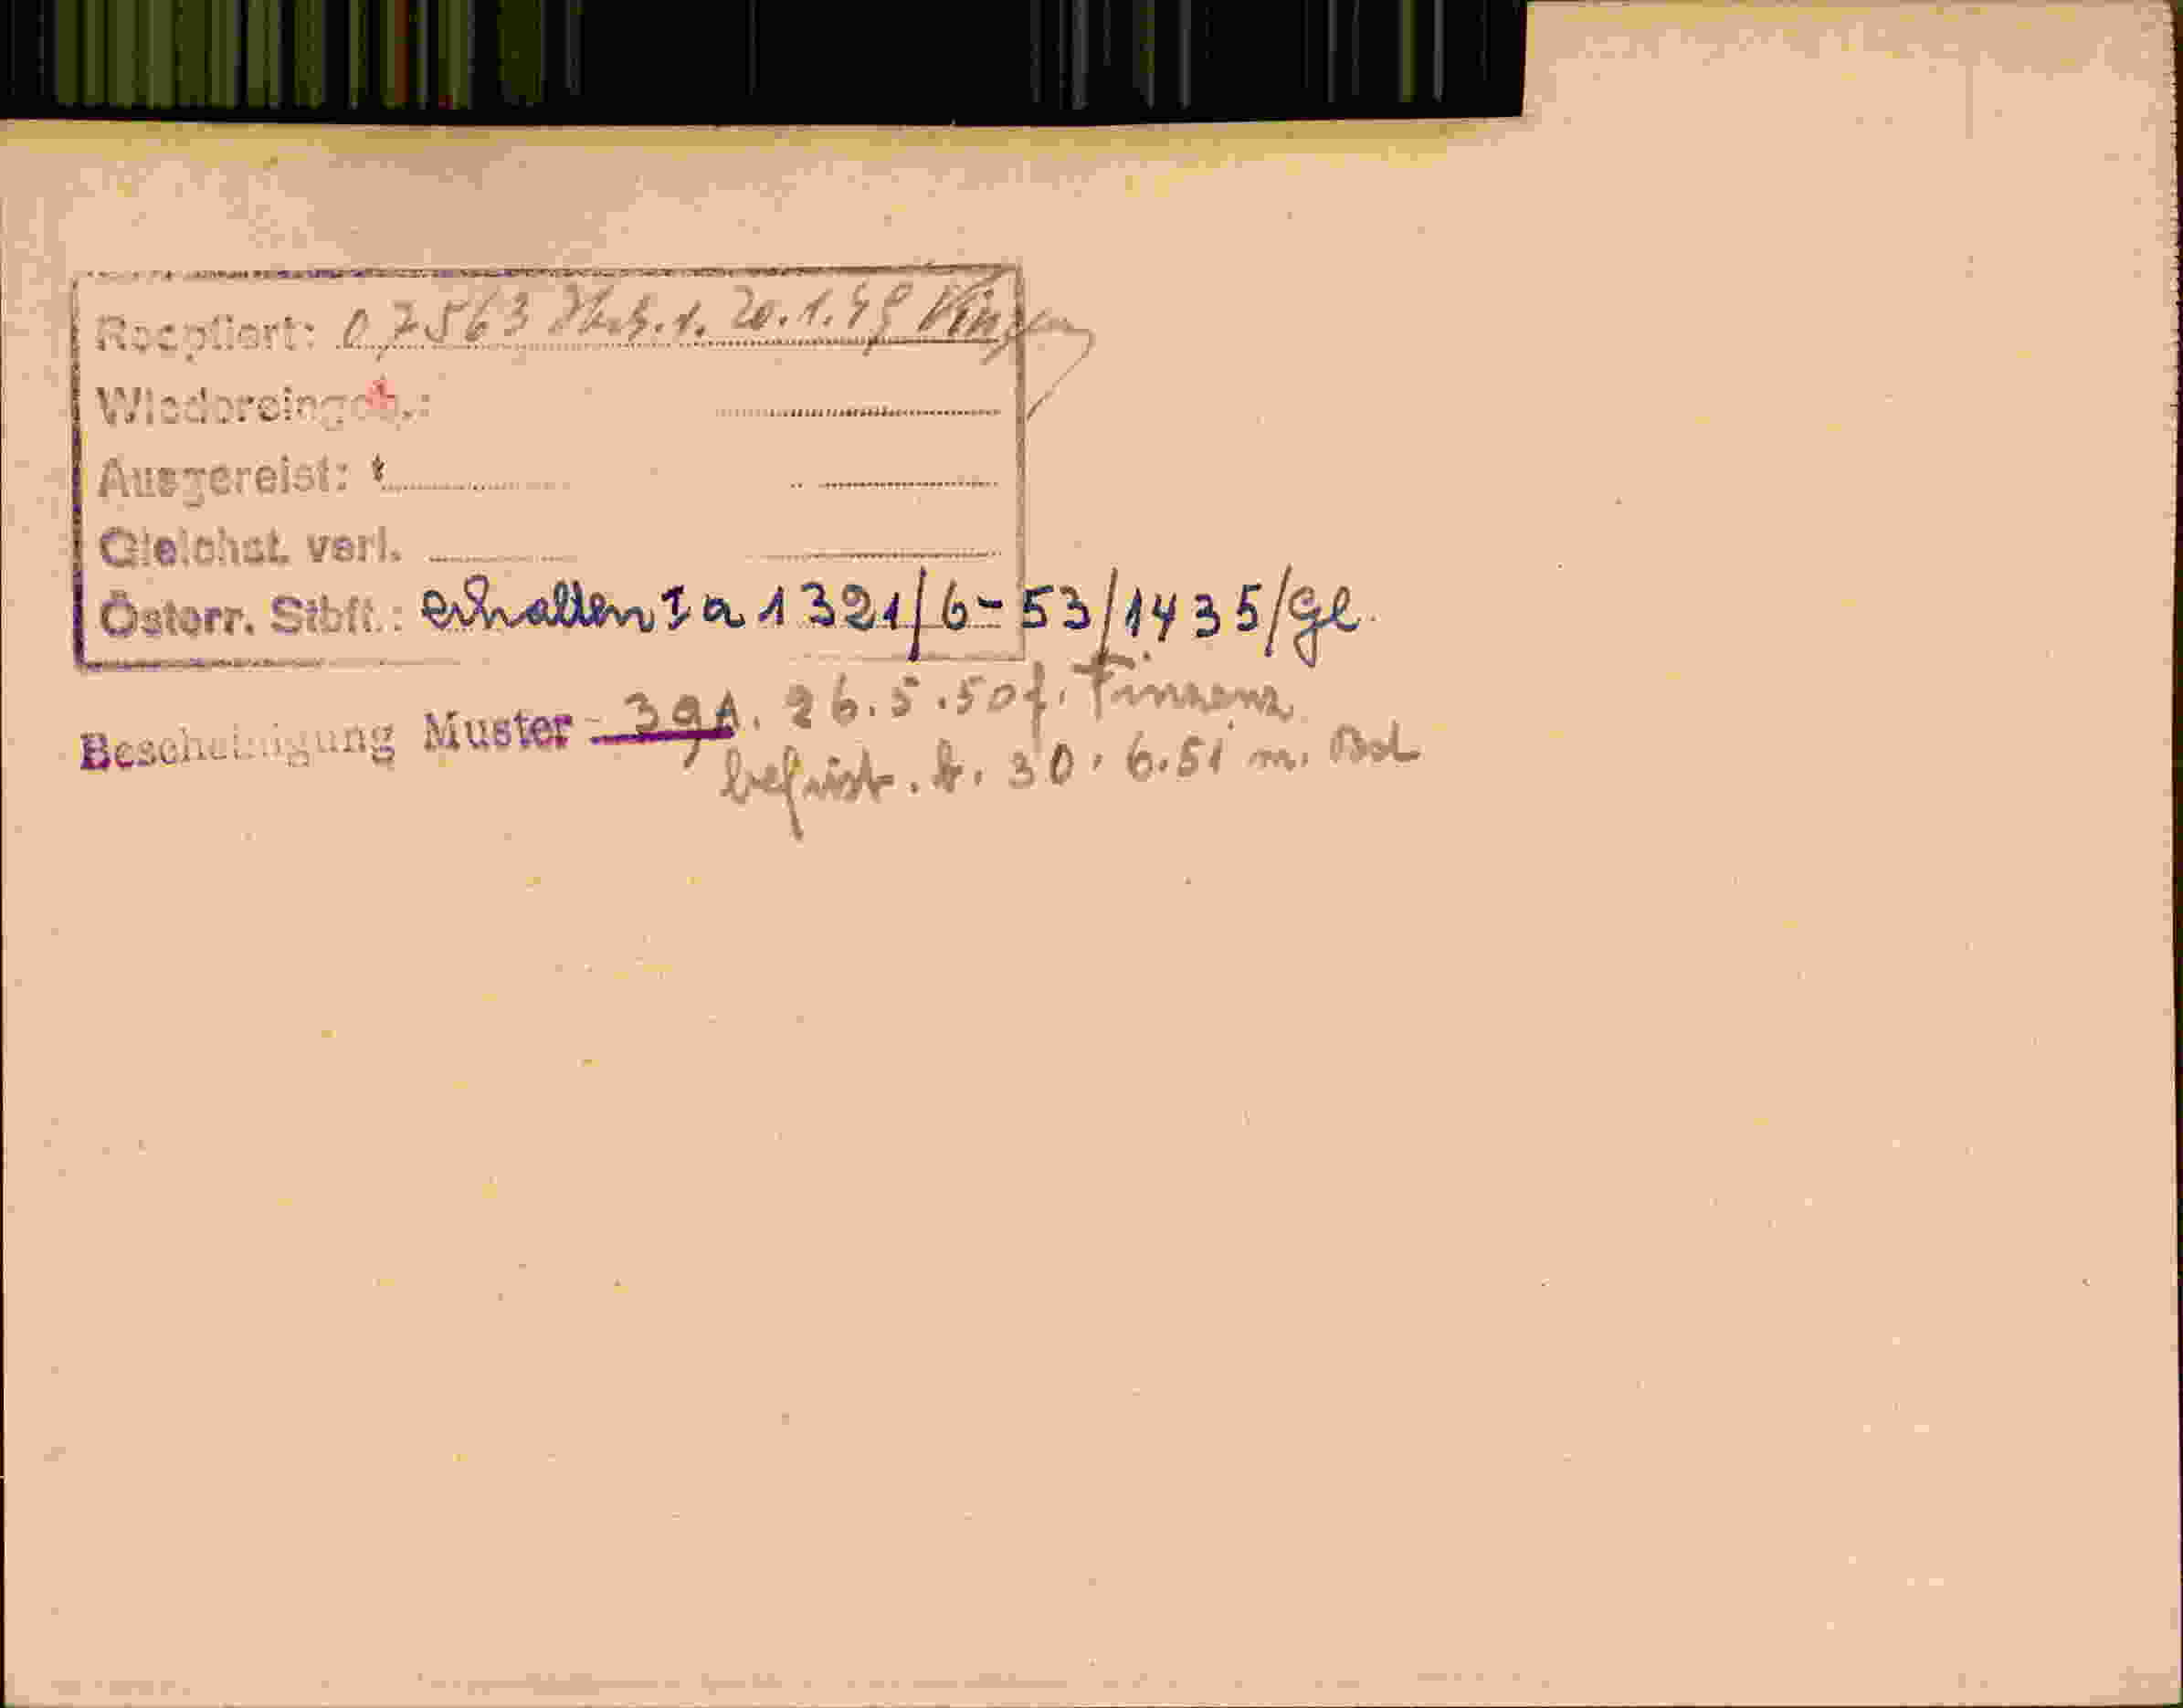 Recptiert: 0,7563 20.1.49
Wiedereingeb.:
Ausgereist:
Gleichst. verl.
Österr. Stbft.: erhalten I a 1321/6-53/1435/Gl.
Bescheinigung Muster - 39A. 26.5.50 f.
befrist. b. 30.6.51 m.